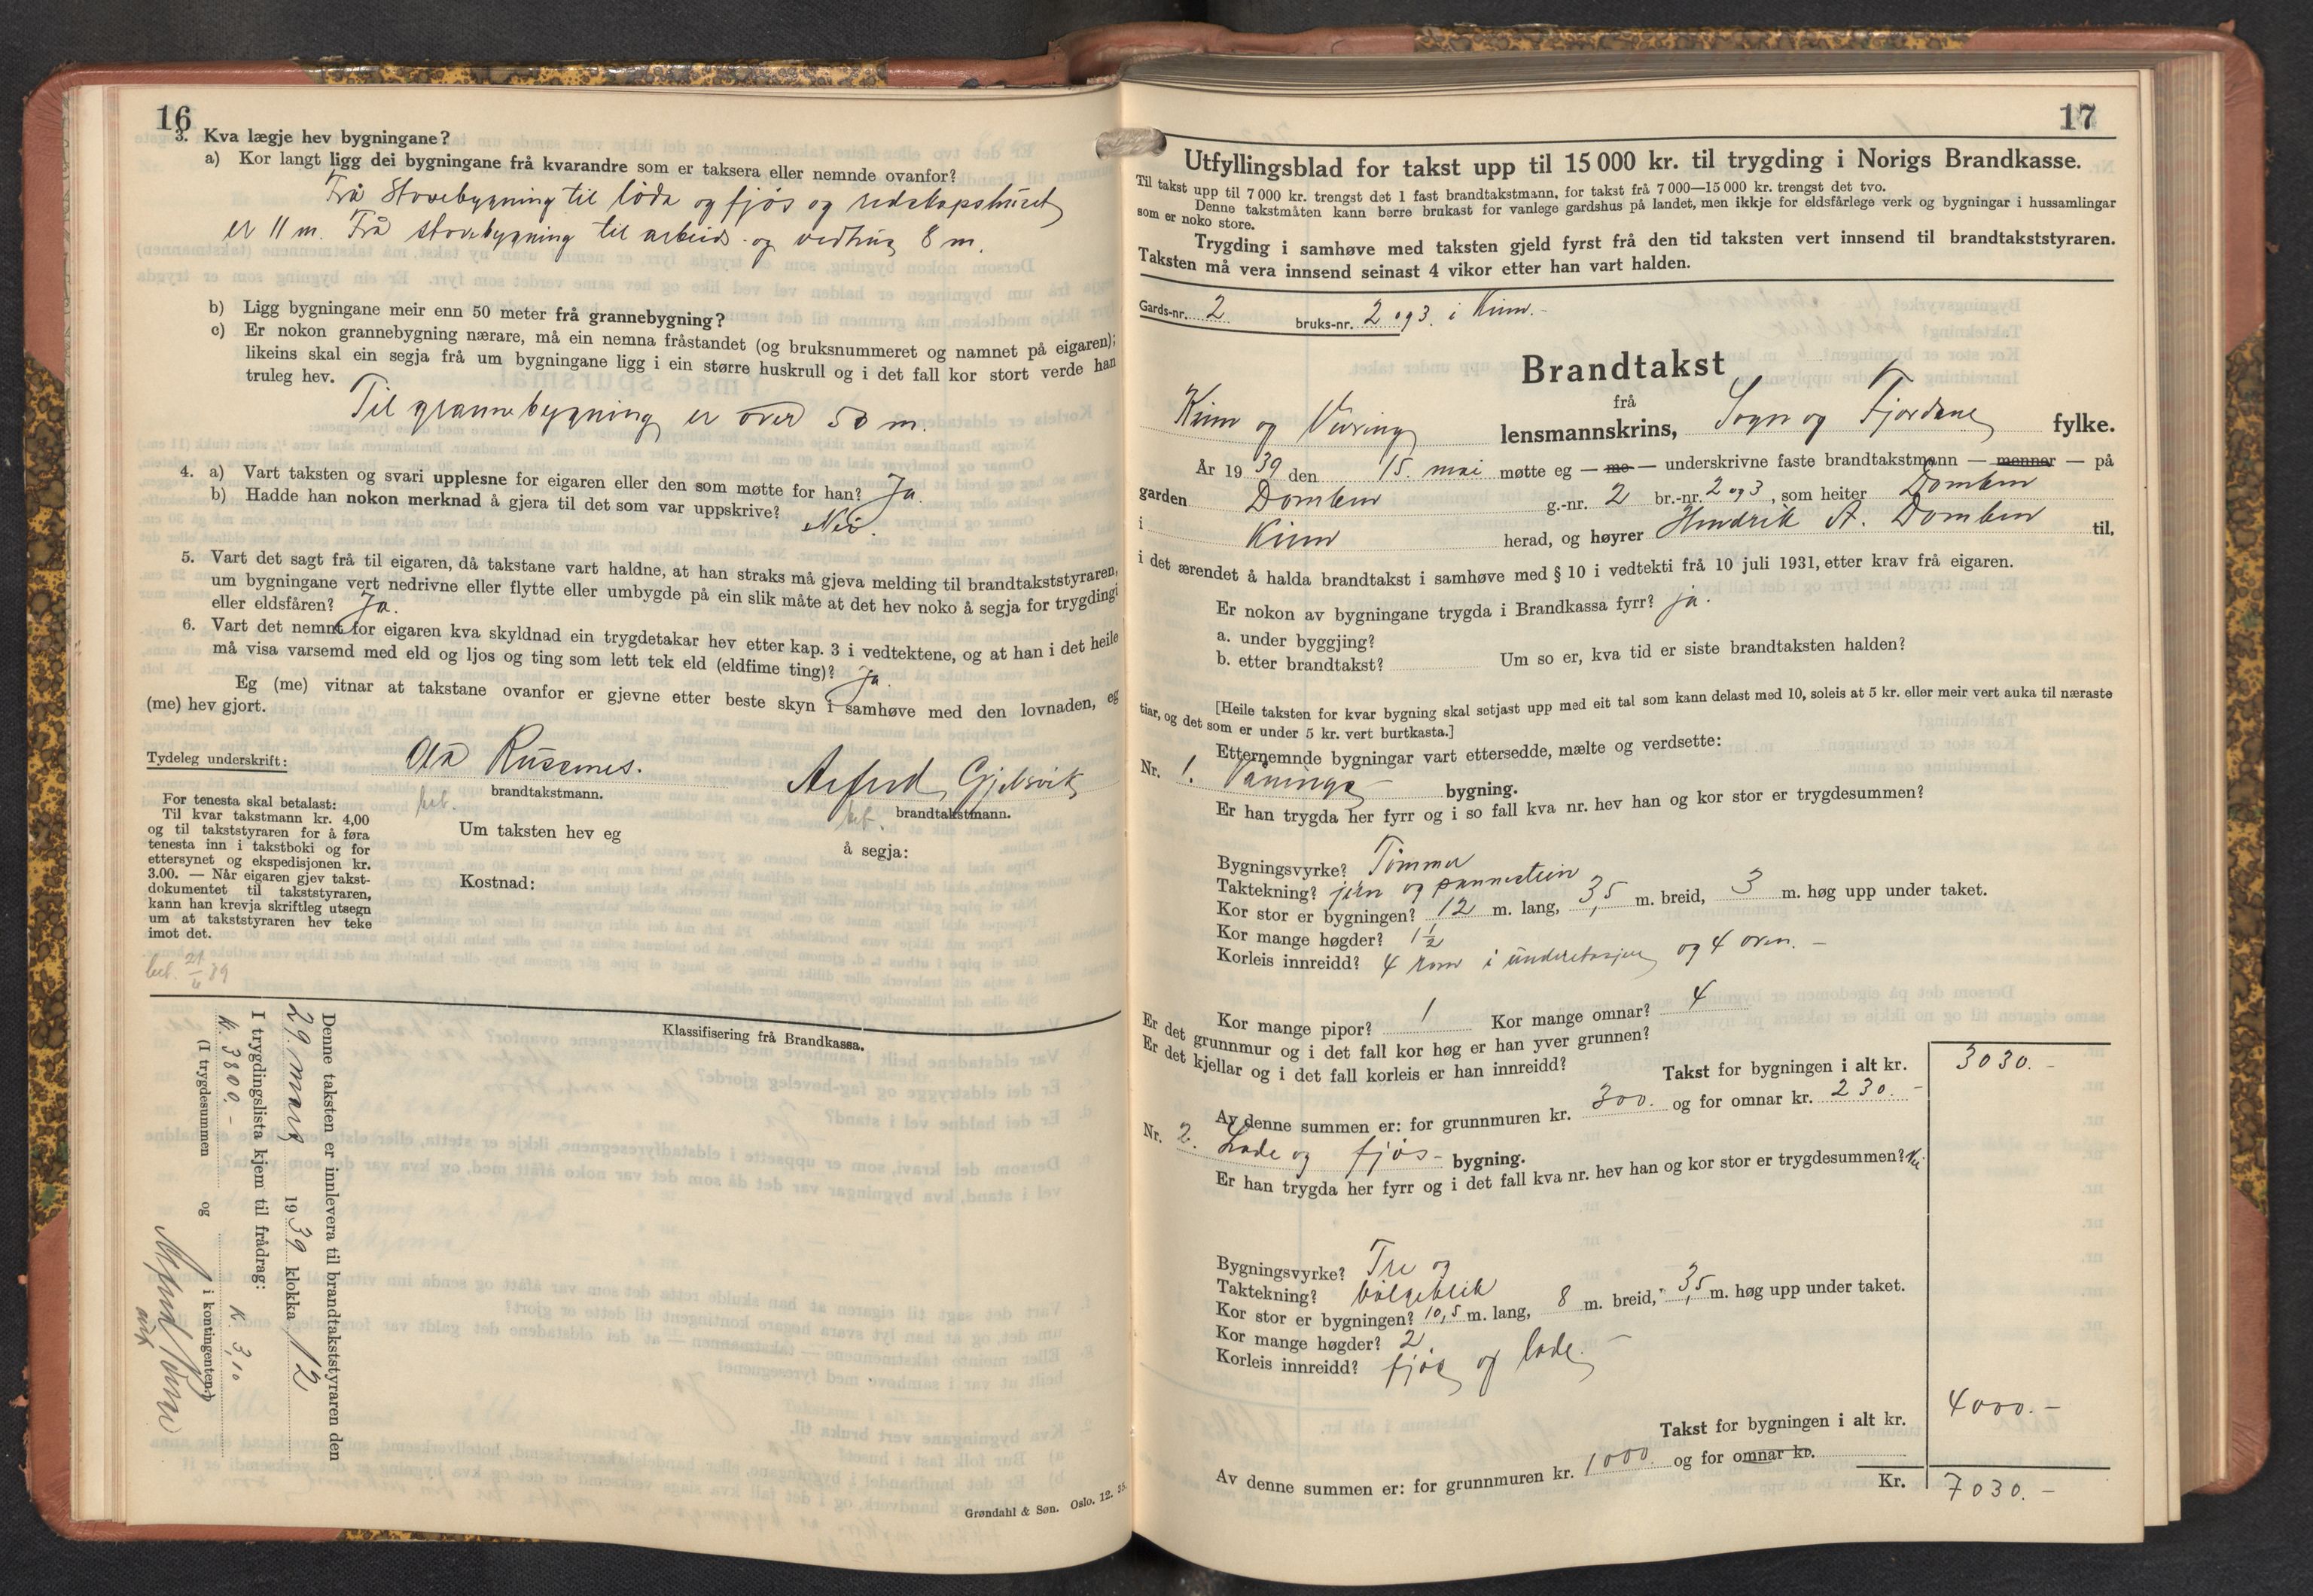 16
3. Kva lægje hev bygningane?
a) Kor langt ligg dei bygningane frå kvarandre som er taksera eller nemnde ovanfor?
Frå Stovebygning til löda og fjös og redskapshuset
er 11 m. Frå stovebygning til arbeids- og vedhus 8 m.
b) Ligg bygningane meir enn 50 meter frå grannebygning?
c) Er nokon grannebygning nærare, må ein nemna fråstandet (og bruksnummeret og namnet på eigaren);
likeins skal ein segja frå um bygningane ligg i ein større huskrull og i det fall kor stort verde han
truleg hev.
Til grannebygning er over 50 m.
4. a) Vart taksten og svari upplesne for eigaren eller den som møtte for han? Ja.
b) Hadde han nokon merknad å gjera til det som var uppskrive? Nei.
5. Vart det sagt frå til eigaren, då takstane vart haldne, at han straks må gjeva melding til brandtakststyraren,
um bygningane vert nedrivne eller flytte eller umbygde på ein slik måte at det hev noko å segja for trygdingi
eller eldsfåren? Ja.
6. Vart det nemnt for eigaren kva skyldnad ein trygdetakar hev etter kap. 3 i vedtektene, og at han i det heile
må visa varsemd med eld og ljos og ting som lett tek eld (eldfime ting)? Ja
Eg (me) vitnar at takstane ovanfor er gjevne etter beste skyn i samhøve med den lovnaden, eg
(me) hev gjort.
Tydeleg underskrift: Ola Russenes. Alfred Gjelsvik
bet. brandtakstmann. bet. brandtakstmann.
For tenesta skal betalast:
Til kvar takstmann kr. 4,00
og til takststyraren for å føra
tenesta inn i takstboki og for
ettersynet og ekspedisjonen kr.
3.00. — Når eigaren gjev takst-
dokumentet til takststyraren,
kann han krevja skriftleg utsegn
um at takststyraren hev teke
imot det.
Um taksten hev eg å segja:
Kostnad:
bet. 21/6 39
Klassifisering frå Brandkassa.
Denne taksten er innlevera til brandtakststyraren den
29. mars 1939 klokka 12
I trygdingslista kjem til frådrag:
kr. 3800.- K. 3,10
(I trygdesummen og i kontingenten)
Grøndahl & Søn. Oslo. 12. 35.
17
Utfyllingsblad for takst upp til 15 000 kr. til trygding i Norigs Brandkasse.
Til takst upp til 7 000 kr. trengst det 1 fast brandtakstmann, for takst frå 7 000—15 000 kr. trengst det tvo.
Denne takstmåten kann berre brukast for vanlege gardshus på landet, men ikkje for eldsfårlege verk og bygningar i hussamlingar
som er noko store.
Trygding i samhøve med taksten gjeld fyrst frå den tid taksten vert innsend til brandtakststyraren.
Taksten må vera innsend seinast 4 vikor etter han vart halden.
Gards-nr. 2 bruks-nr. 2 og 3. i Kinn.-
Brandtakst
frå
Kinn og Vevring lensmannskrins, Sogn og Fjordane fylke.
År 1939 den 15. mai møtte eg — me — underskrivne faste brandtakstmann — menner — på
garden Domben g.-nr. 2 br.-nr. 2 og 3, som heiter Domben
i Kinn herad, og høyrer Hendrik A. Domben til,
i det ærendet å halda brandtakst i samhøve med § 10 i vedtekti frå 10 juli 1931, etter krav frå eigaren.
Er nokon av bygningane trygda i Brandkassa fyrr? ja.
a. under byggjing?
b. etter brandtakst? Um so er, kva tid er siste brandtaksten halden?
[Heile taksten for kvar bygning skal setjast upp med eit tal som kann delast med 10, soleis at 5 kr. eller meir vert auka til næraste
tiar, og det som er under 5 kr. vert burtkasta.]
Etternemnde bygningar vart ettersedde, mælte og verdsette:
Nr. 1. Vånings- bygning.
Er han trygda her fyrr og i so fall kva nr. hev han og kor stor er trygdesummen?
Bygningsvyrke? Tömmer
Taktekning? jern og pannestein
Kor stor er bygningen? 12 m. lang, 3,5 m. breid, 3 m. høg upp under taket.
Kor mange høgder? 1½
Korleis innreidd? 4 rom i underetasjen og 4 oven. –
Kor mange pipor? 1 Kor mange omnar? 4
Er det grunnmur og i det fall kor høg er han yver grunnen?
Er det kjellar og i det fall korleis er han innreidd?
Takst for bygningen i alt kr. 3030.-
Av denne summen er: for grunnmuren kr. 300. og for omnar kr. 230.-
Nr. 2. Lade og fjös- bygning.
Er han trygda her fyrr og i det fall kva nr. hev han og kor stor er trygdesummen?
Bygningsvyrke? Tre og
Taktekning? bölgeblik
Kor stor er bygningen? 10,5 m. lang, 8 m. breid, 3,5 m. høg upp under taket.
Kor mange høgder? 2
Korleis innreidd? fjös og lade. –
Takst for bygningen i alt kr. 4000.-
Av denne summen er: for grunnmuren kr. 1000. og for omnar kr.
Kr. 7030.-